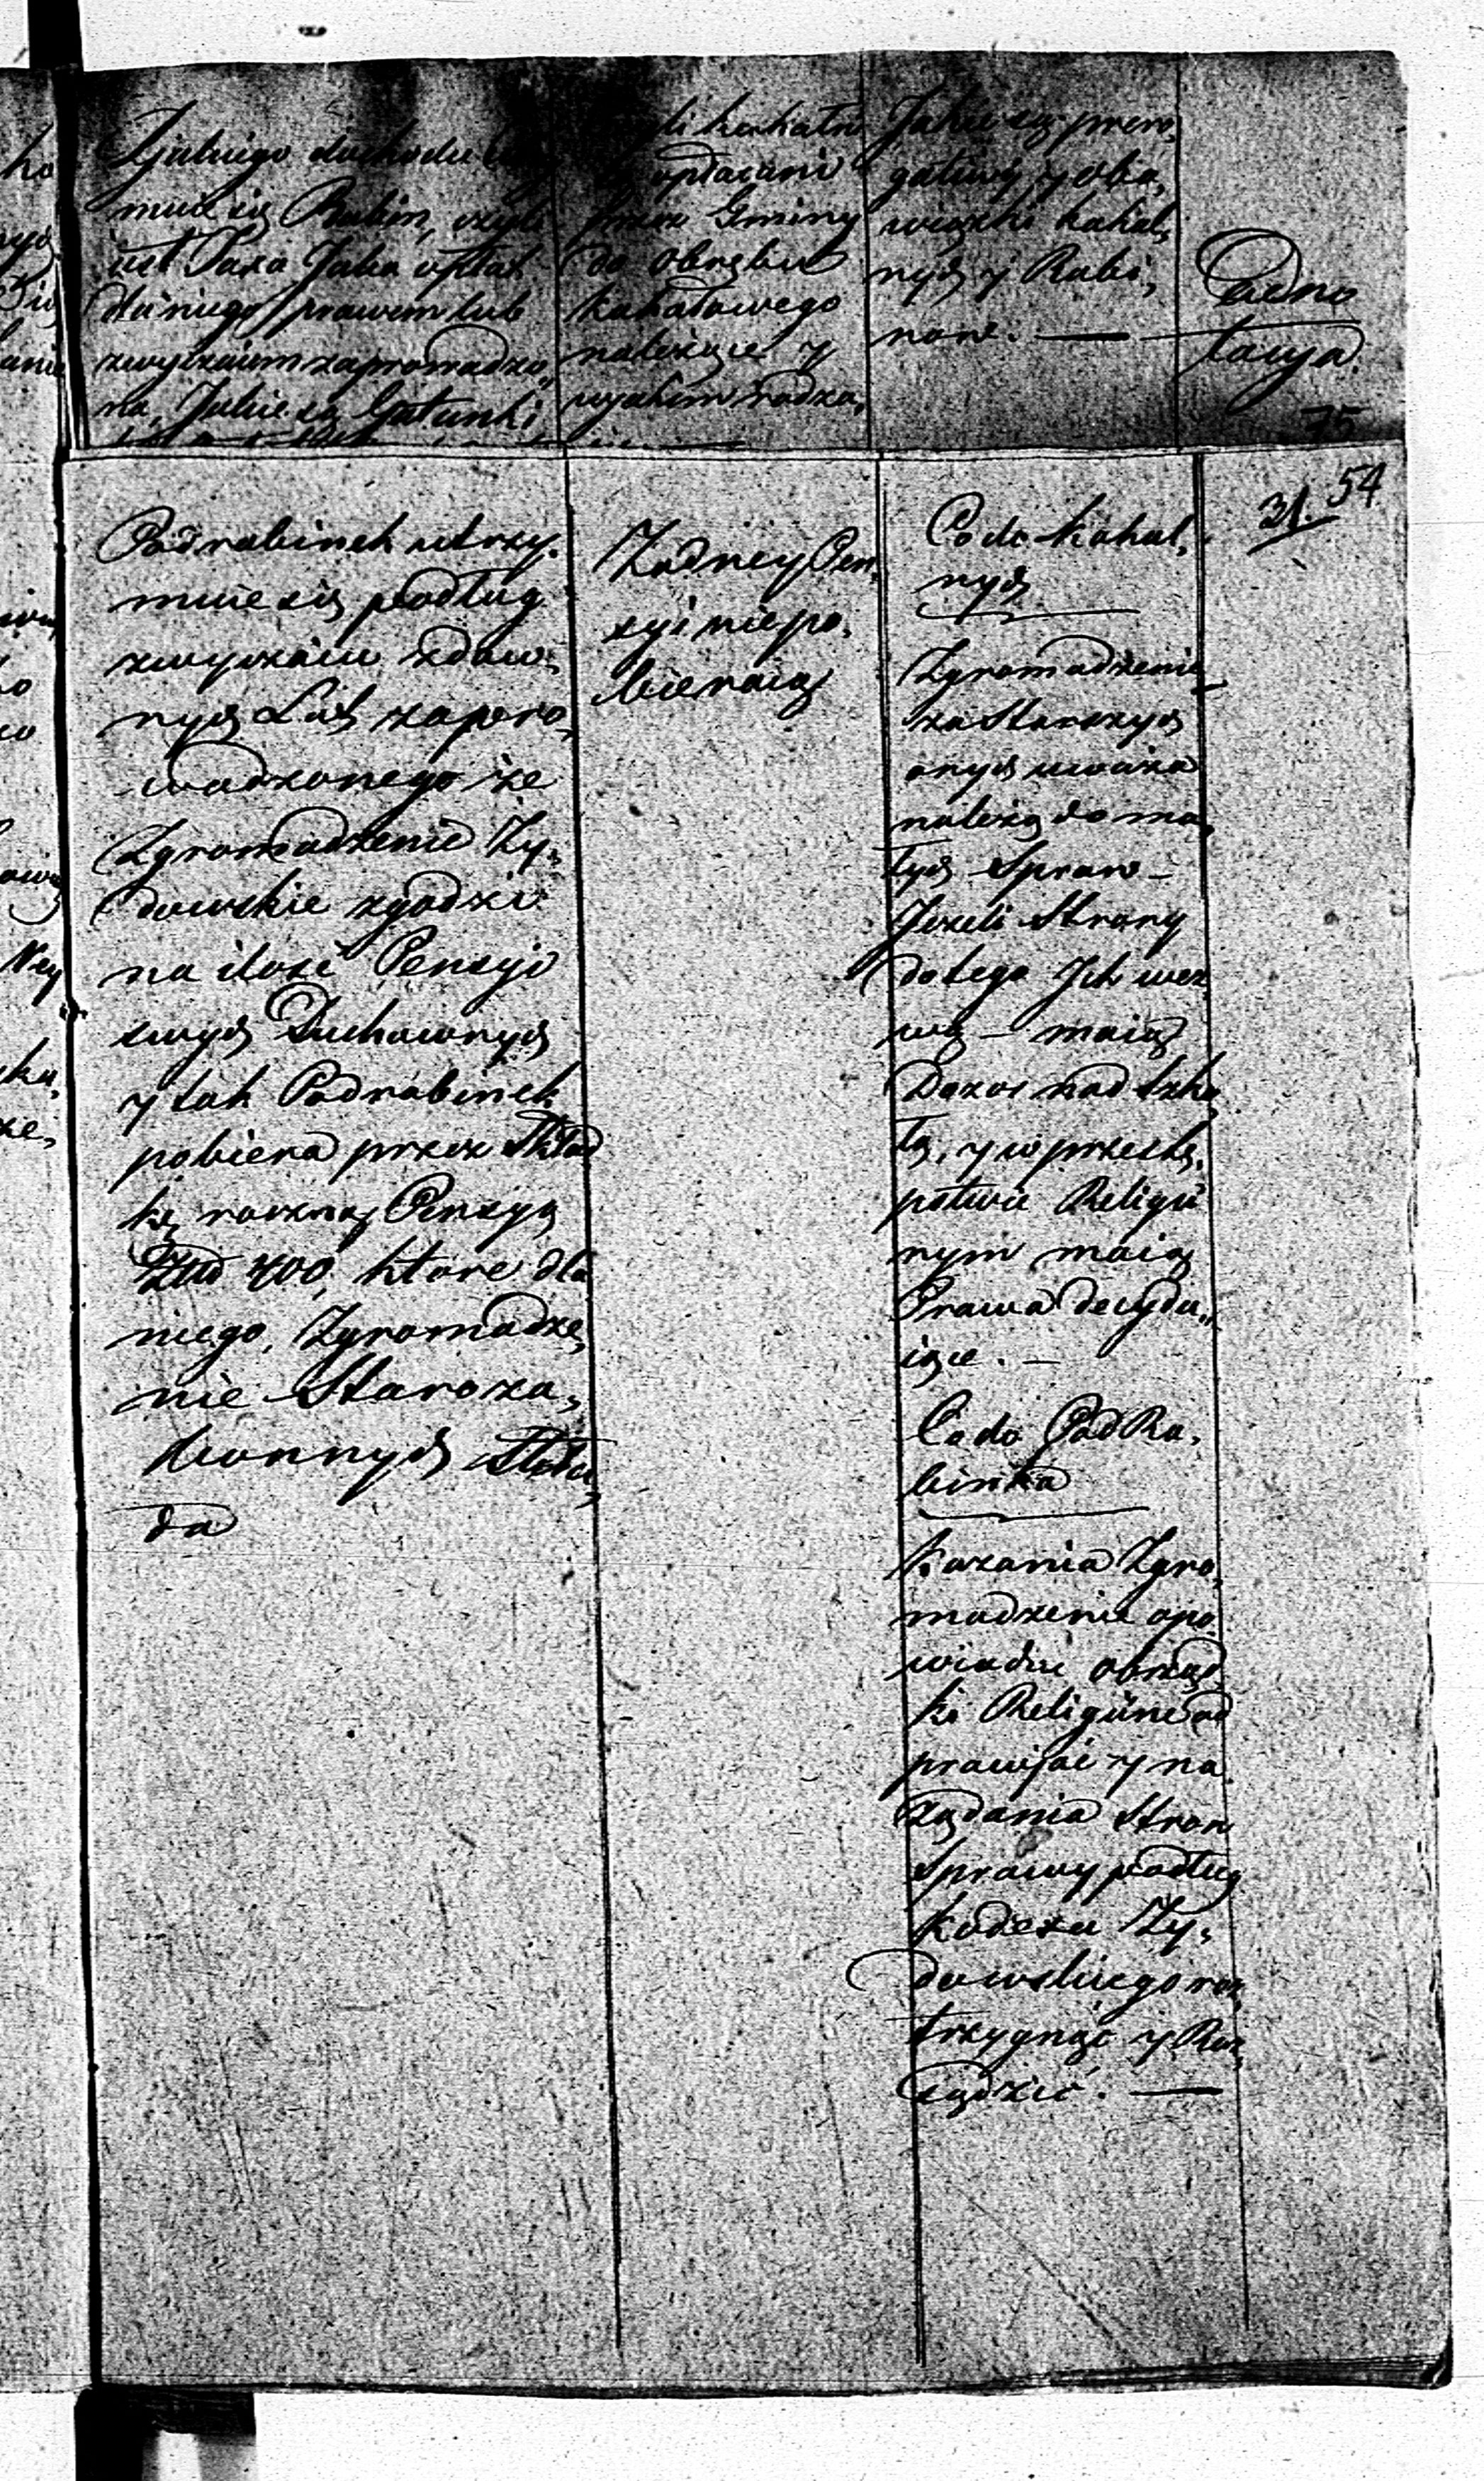 Zjakiego dochodu utrzy
muie się Rabin, czyli
iest Taxa Jaka opłat
dla niego prawem lub
zwyczaiem zaprowadzo„
na, Jakie są Gatunki
kahału
opłacani
przez Gminy
do obrębu
kahałowego
należące y
wjakim rodza„
Jakie są prero„
gatiwy y obo„
wiązki kahal„
nych y Rabi„
now. —
Adno
tacya.
75
54
21.
Podrabinek utrzy„
muie się podług
zwyczaiu zdaw„
nych Lat zapro„
wadzonego że
Zgromadzenie Ży„
dowskie zgodzi
na ilość Pensyi
swych Duchownych
y tak Podrabinek
pobiera przez Skład
kę roczną Pensyą
Złł 400, które dla
niego, Zgromadze„
nie Staroza„
konnych Skła„
da
Żadney Pen„
syi niepo„
bieraią
Co do kahal„
nych
Zgromadzenie
za Starszych
onych uważa
należą do ma„
łych Spraw —
Jeżeli Strony
do tego Ich wez„
wą — maią
Dozor nad szko„
łą, y w przestę„
pstwie Religii
nym maią
Prawa decydu„
iące. —
Co do PodRa„
binka
Kazania Zgro„
madzeniu opo„
wiadać obrząd
ki Religiine od
prawiać y na
żądania Stron
Sprawy podług
kodexu Ży„
dowskiego roz„
trzygnąć y Roz„
sądzić. —